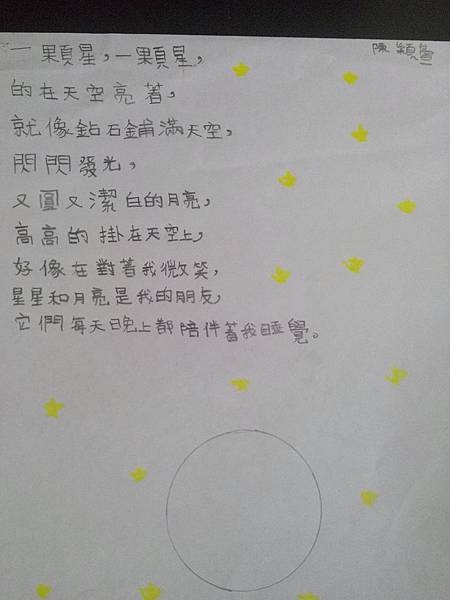 一顆星,一顆星,
陳穎萱
的在天空亮著,
就像鉆石鋪滿天空,
閃閃發光,
又圓又潔白的月亮,
高高的掛在天空上,
好像在對著我微笑,
星星和月亮是我的朋友,
它們每天晚上都陪伴著我睡覺。